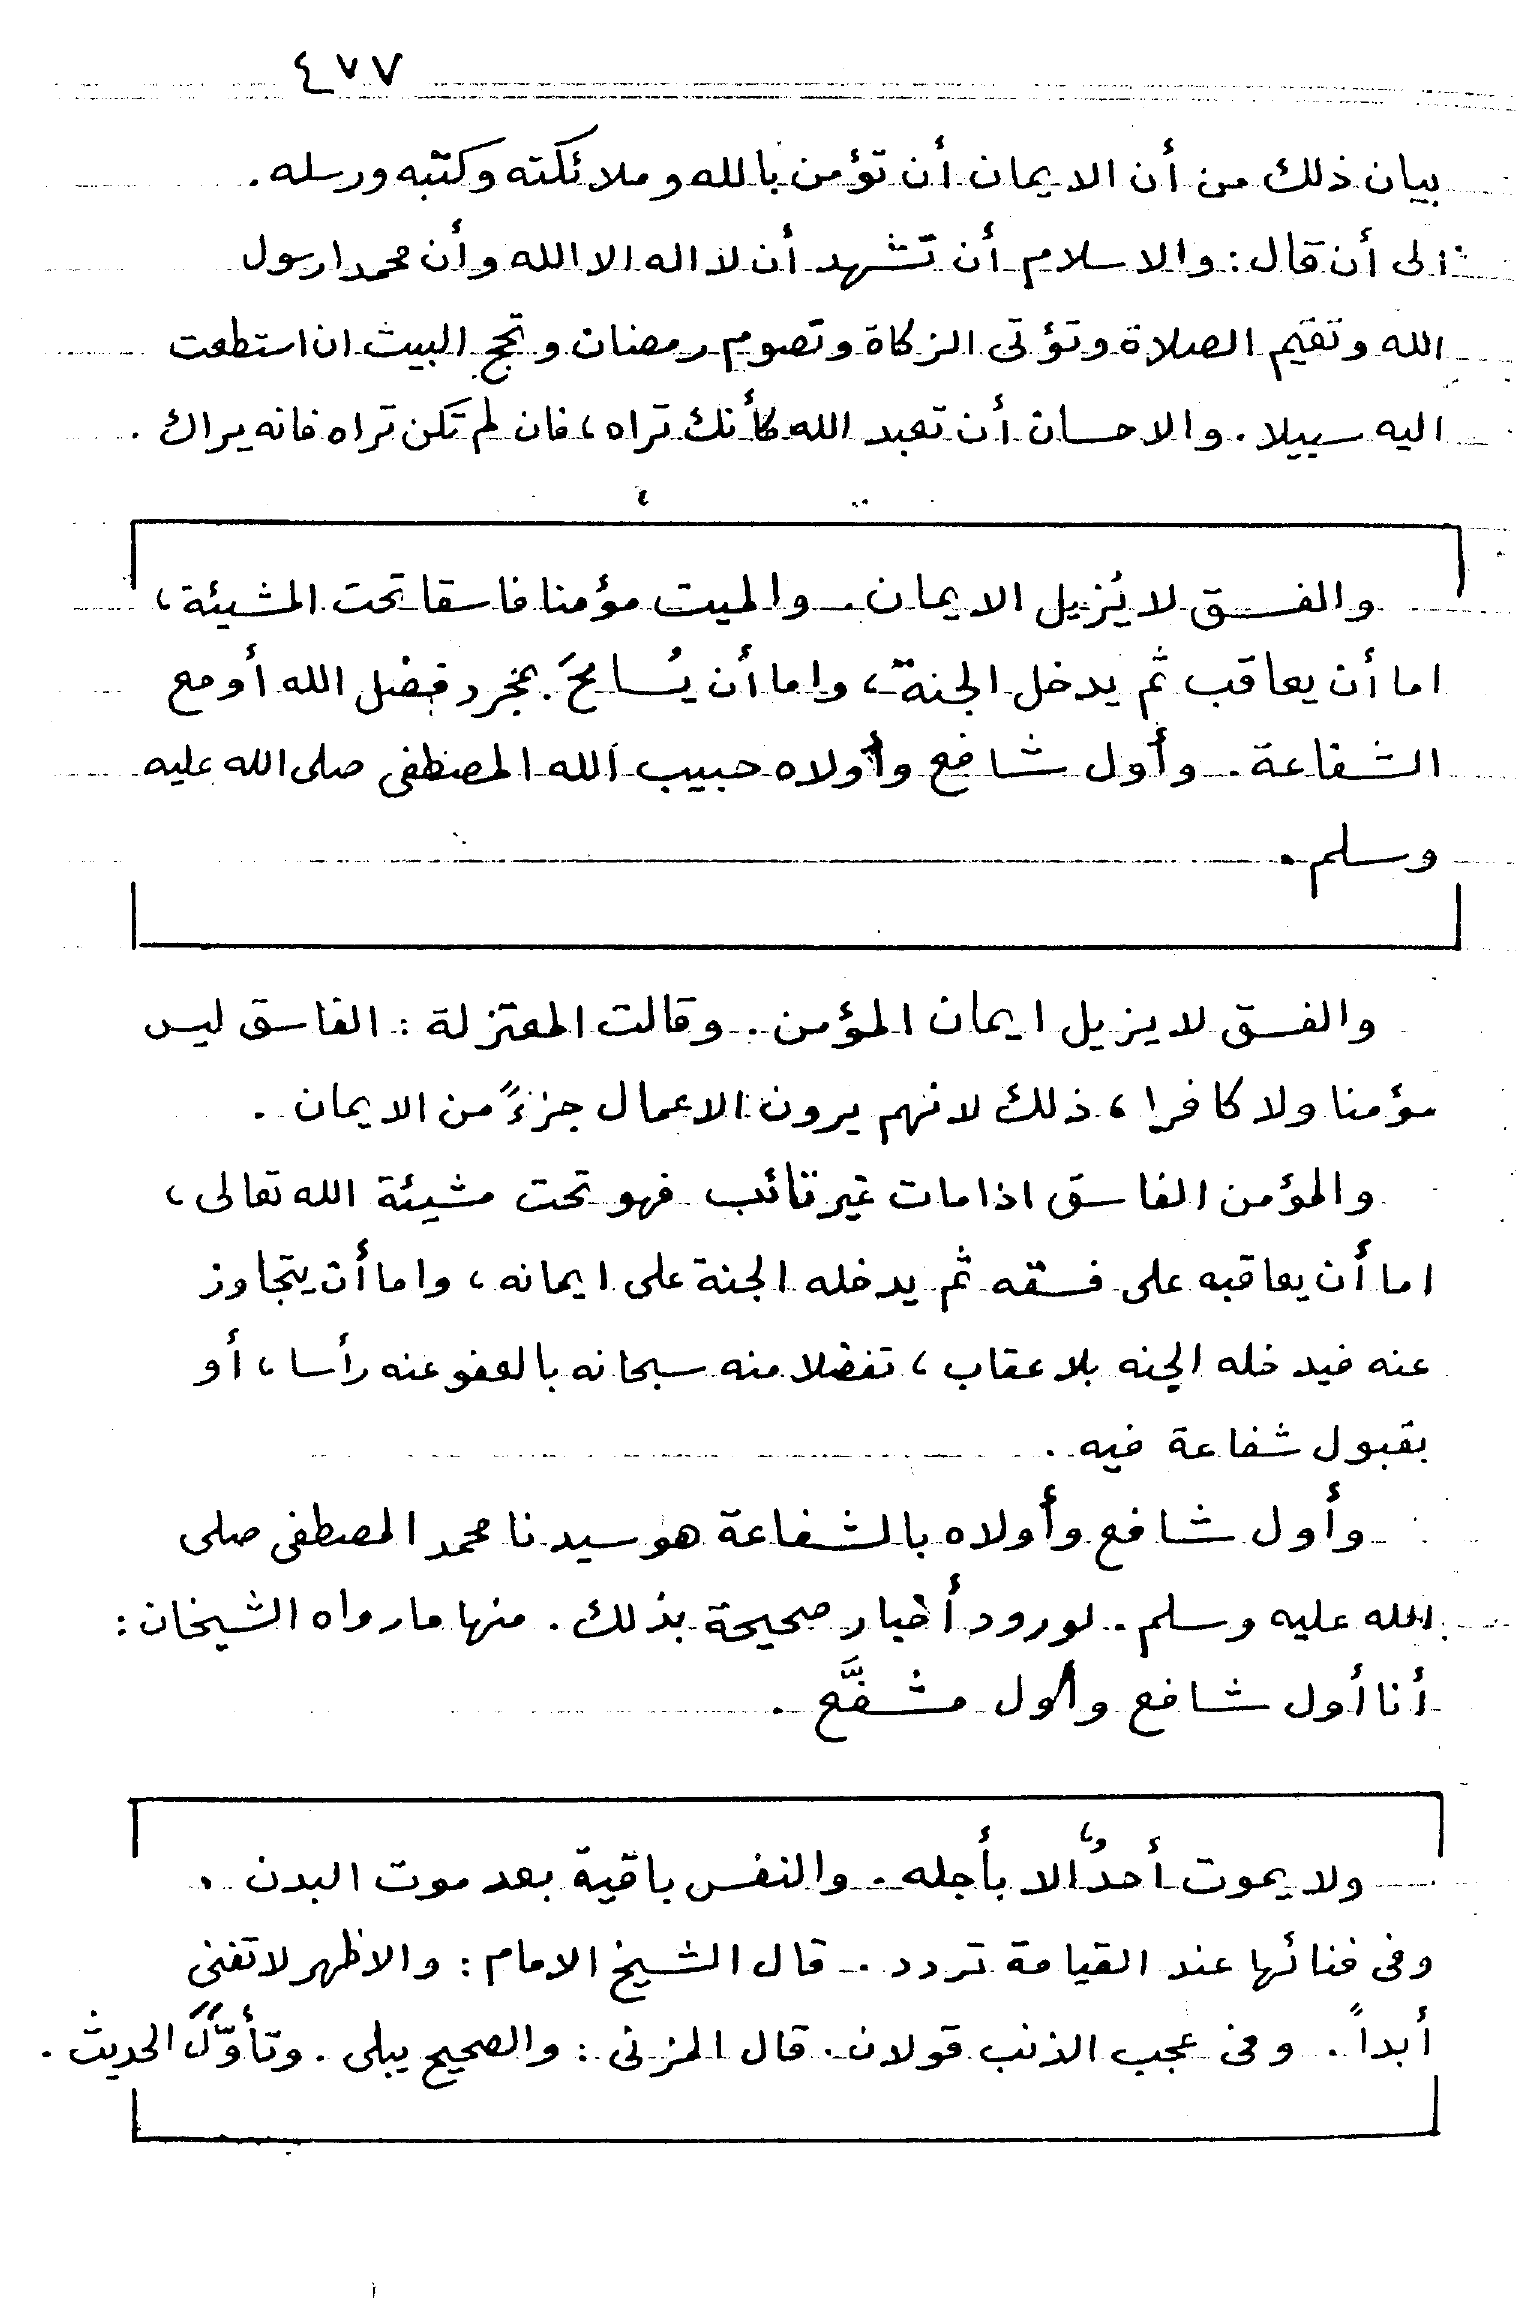 ٤٧٧
بيان ذلك من أن الايمان أن تؤمن بالله وملائكته وكتبه ورسله.
الى أن قال: والاسلام أن تشهد أن لا اله الا الله وأن محمدا رسول
الله وتقيم الصلاة وتؤتى الزكاة وتصوم رمضان وتحج البيت ان استطعت
اليه سبيلا. والاحسان أن تعبد الله كأنك تراه، فان لم تكن تراه فانه يراك.
والفسق لا يُزيل الايمان. والميت مؤمنا فاسقا تحت المشيئة،
اما أن يعاقب ثم يدخل الجنة، واما أن يُسامَحَ بمجرد فضل الله أو مع
الشفاعة. وأول شافع وأولاه حبيب الله المصطفى صلى الله عليه
وسلم.
والفسق لا يزيل ايمان المؤمن. وقالت المعتزلة: الفاسق ليس
مؤمنا ولا كافرا، ذلك لانهم يرون الاعمال جزءًا من الايمان.
والمؤمن الفاسق اذا مات غير تائب فهو تحت مشيئة الله تعالى،
اما أن يعاقبه على فسقه ثم يدخله الجنة على ايمانه، واما أن يتجاوز
عنه فيدخله الجنه بلا عقاب، تفضلا منه سبحانه بالعفو عنه رأسا، أو
بقبول شفاعة فيه.
وأول شافع وأولاه بالشفاعة هو سيدنا محمد المصطفى صلى
الله عليه وسلم. لورود أخبار صحيحة بذلك. منها ما رواه الشيخان:
أنا أول شافع وأول مشفَّع.
ولا يموت أحدٌ الا بأجله. والنفس باقية بعد موت البدن.
وفى فنائها عند القيامة تردد. قال الشيخ الامام: والاظهر لا تفنى
أبداً. وفى عجب الذنب قولان. قال المزنى: والصحيح يبلى. وتأوَّلَ الحديث.